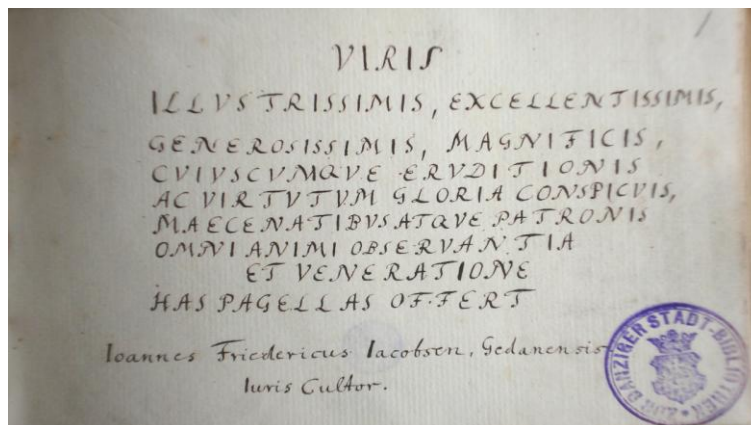 VIRIS
ILLVSTRISSIMIS, EXCELLENTISSIMIS,
GENEROSISSIMIS, MAGNIFICIS,
CVIVSCVMQVE ERVDITIONIS
AC VIRTVTVM GLORIA CONSPICVIS,
MAECENATIBVS ATQVE PATRONIS
OMNI ANIMI OBSERVANTIA
ET VENERATIONE
HAS PAGELLAS OFFERT
Ioannes Friedericus Iacobsen, Gedanensis
Iuris Cultor.
DANZIGER STADT-BIBLIOTHEK